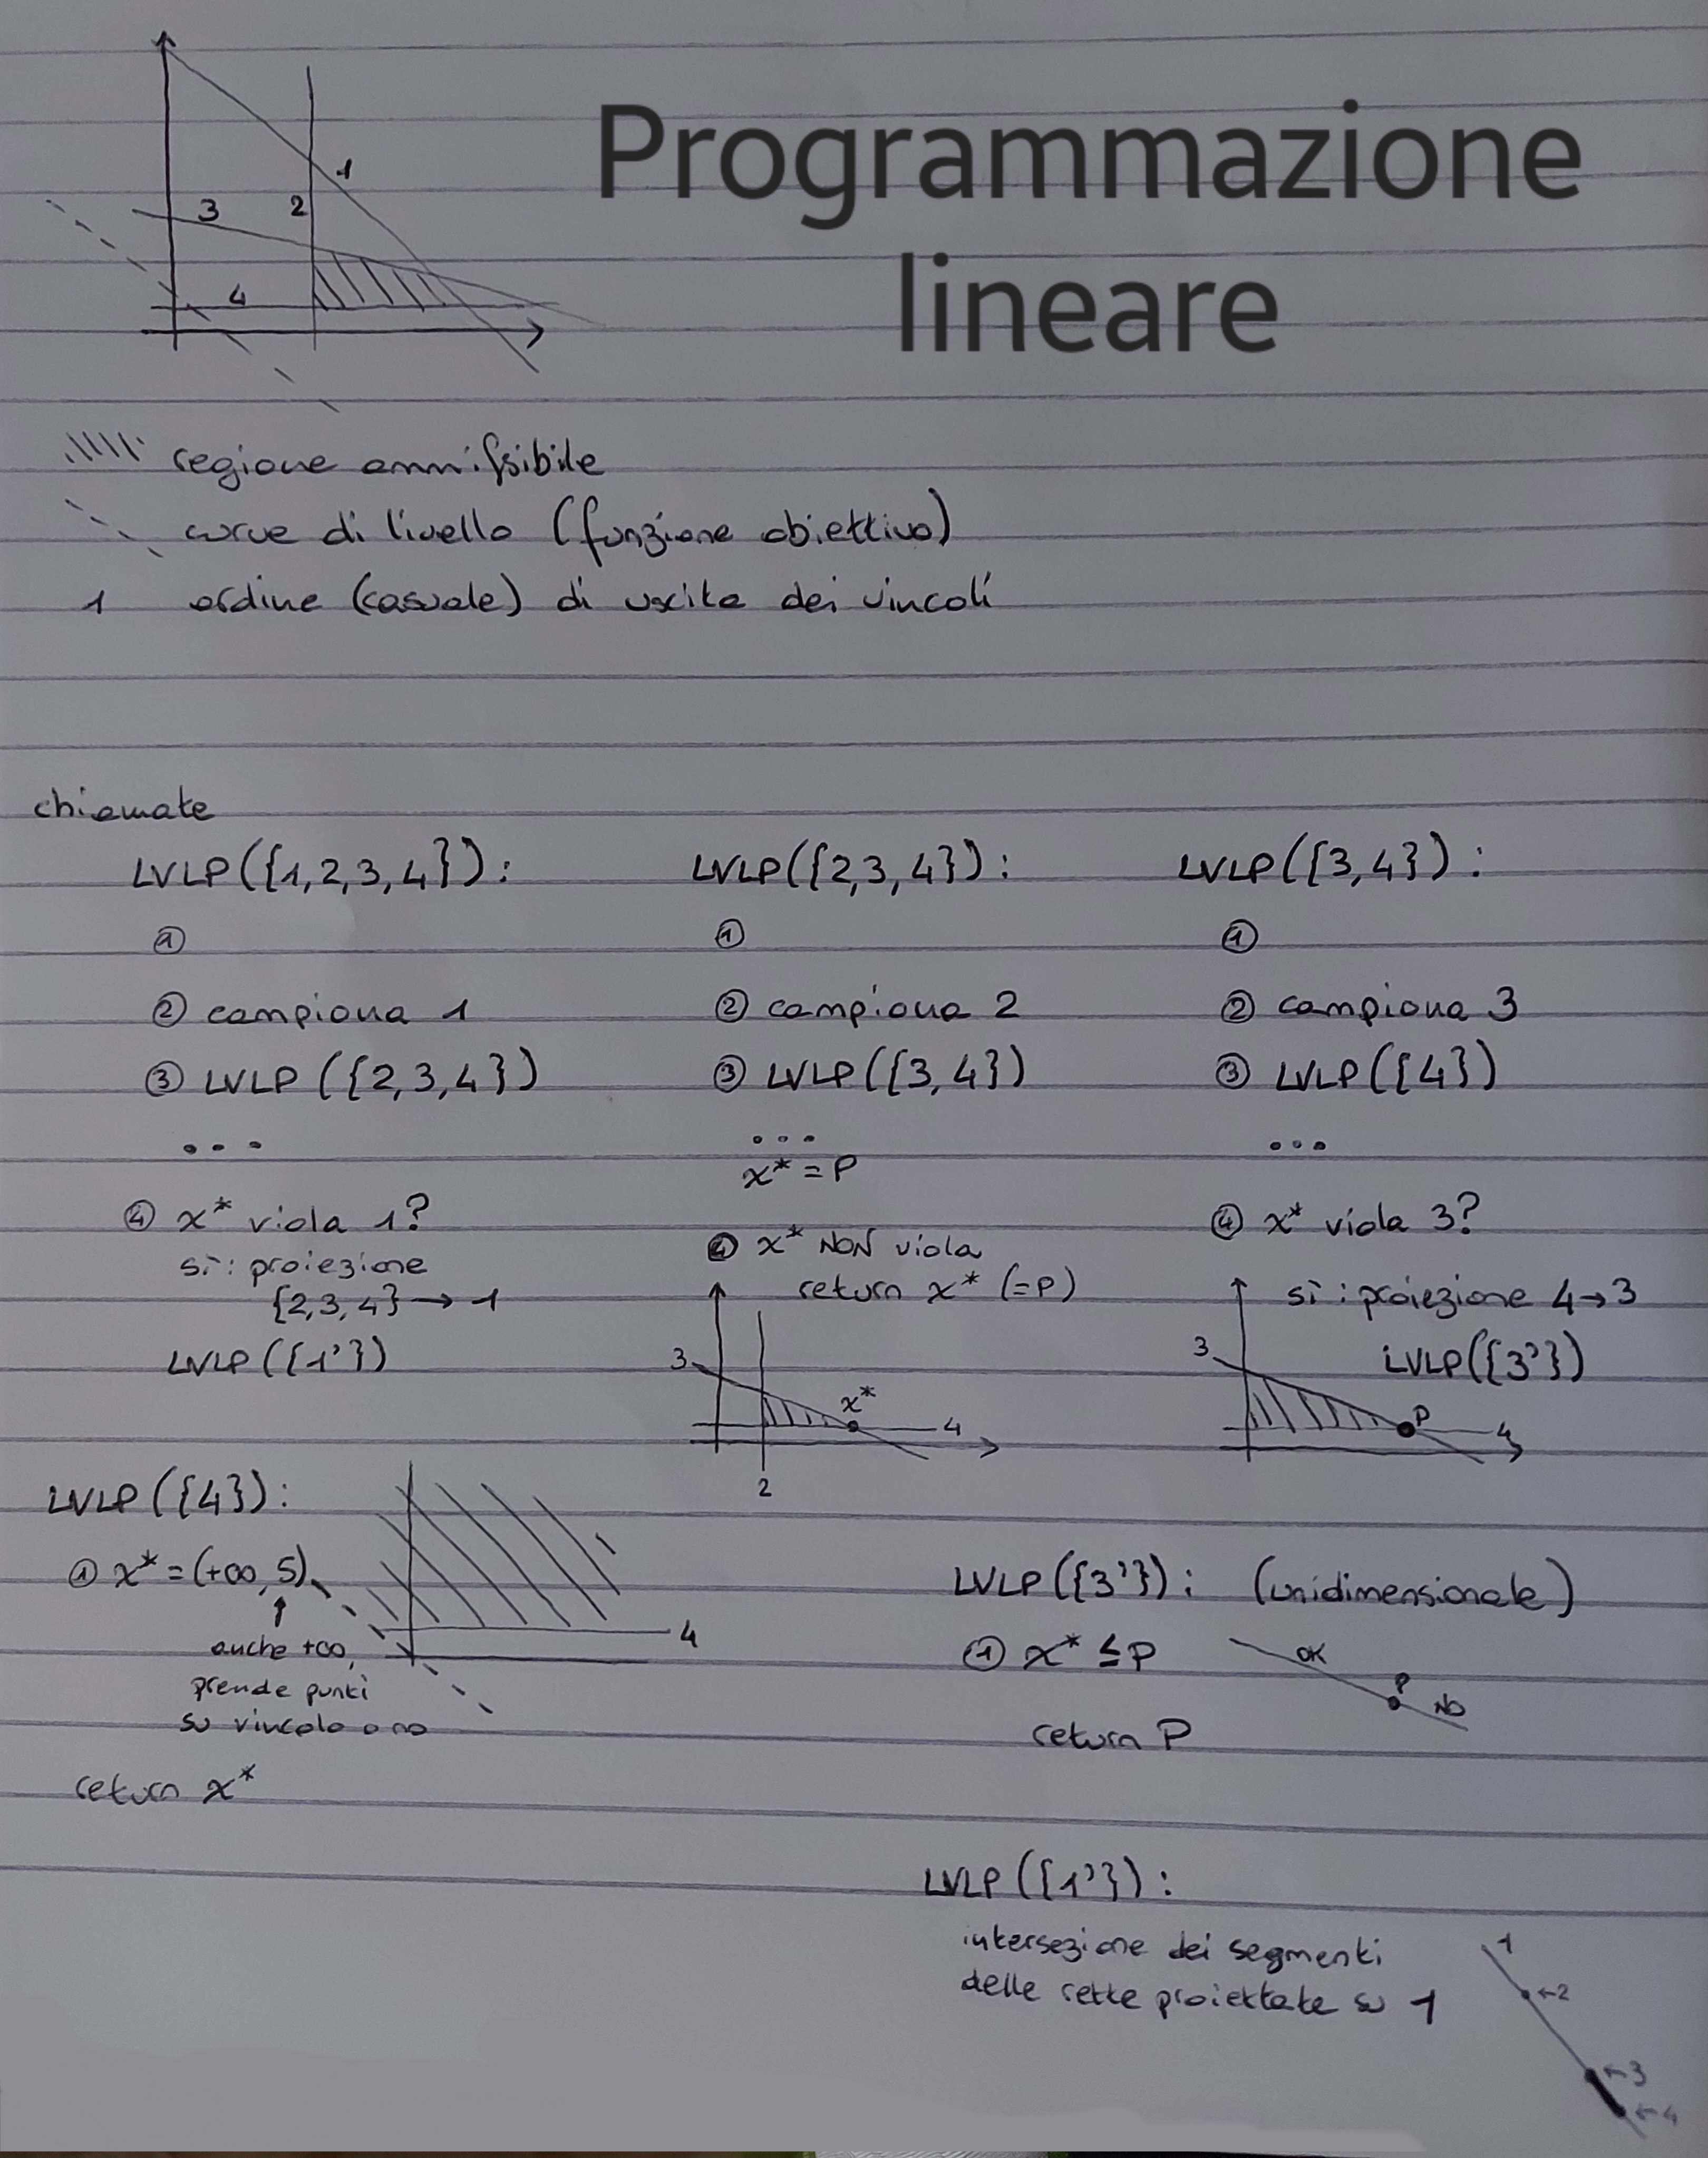 Programmazione
lineare
1
3 2
4
regione ammissibile
curve di livello (funzione obiettivo)
1 ordine (casuale) di uscita dei vincoli
chiamate
LVLP({1,2,3,4}):
①
② campiona 1
③ LVLP({2,3,4})
...
④ x* viola 1?
sì: proiezione
{2,3,4}→1
LVLP({1'})
LVLP({2,3,4}):
①
② campiona 2
③ LVLP({3,4})
...
x* = P
④ x* NON viola
return x* (=P)
3
x*
4
2
LVLP({3,4}):
①
② campiona 3
③ LVLP({4})
...
④ x* viola 3?
sì: proiezione 4→3
3 LVLP({3'})
P
4
LVLP({4}):
① x* = (+∞, 5)
↑
anche +∞,
prende punti
su vincolo o no
4
return x*
LVLP({3'}): (unidimensionale)
① x* ≤ P
OK
P
NO
return P
LVLP({1'}):
intersezione dei segmenti
delle rette proiettate su 1
1
←2
←3
←4